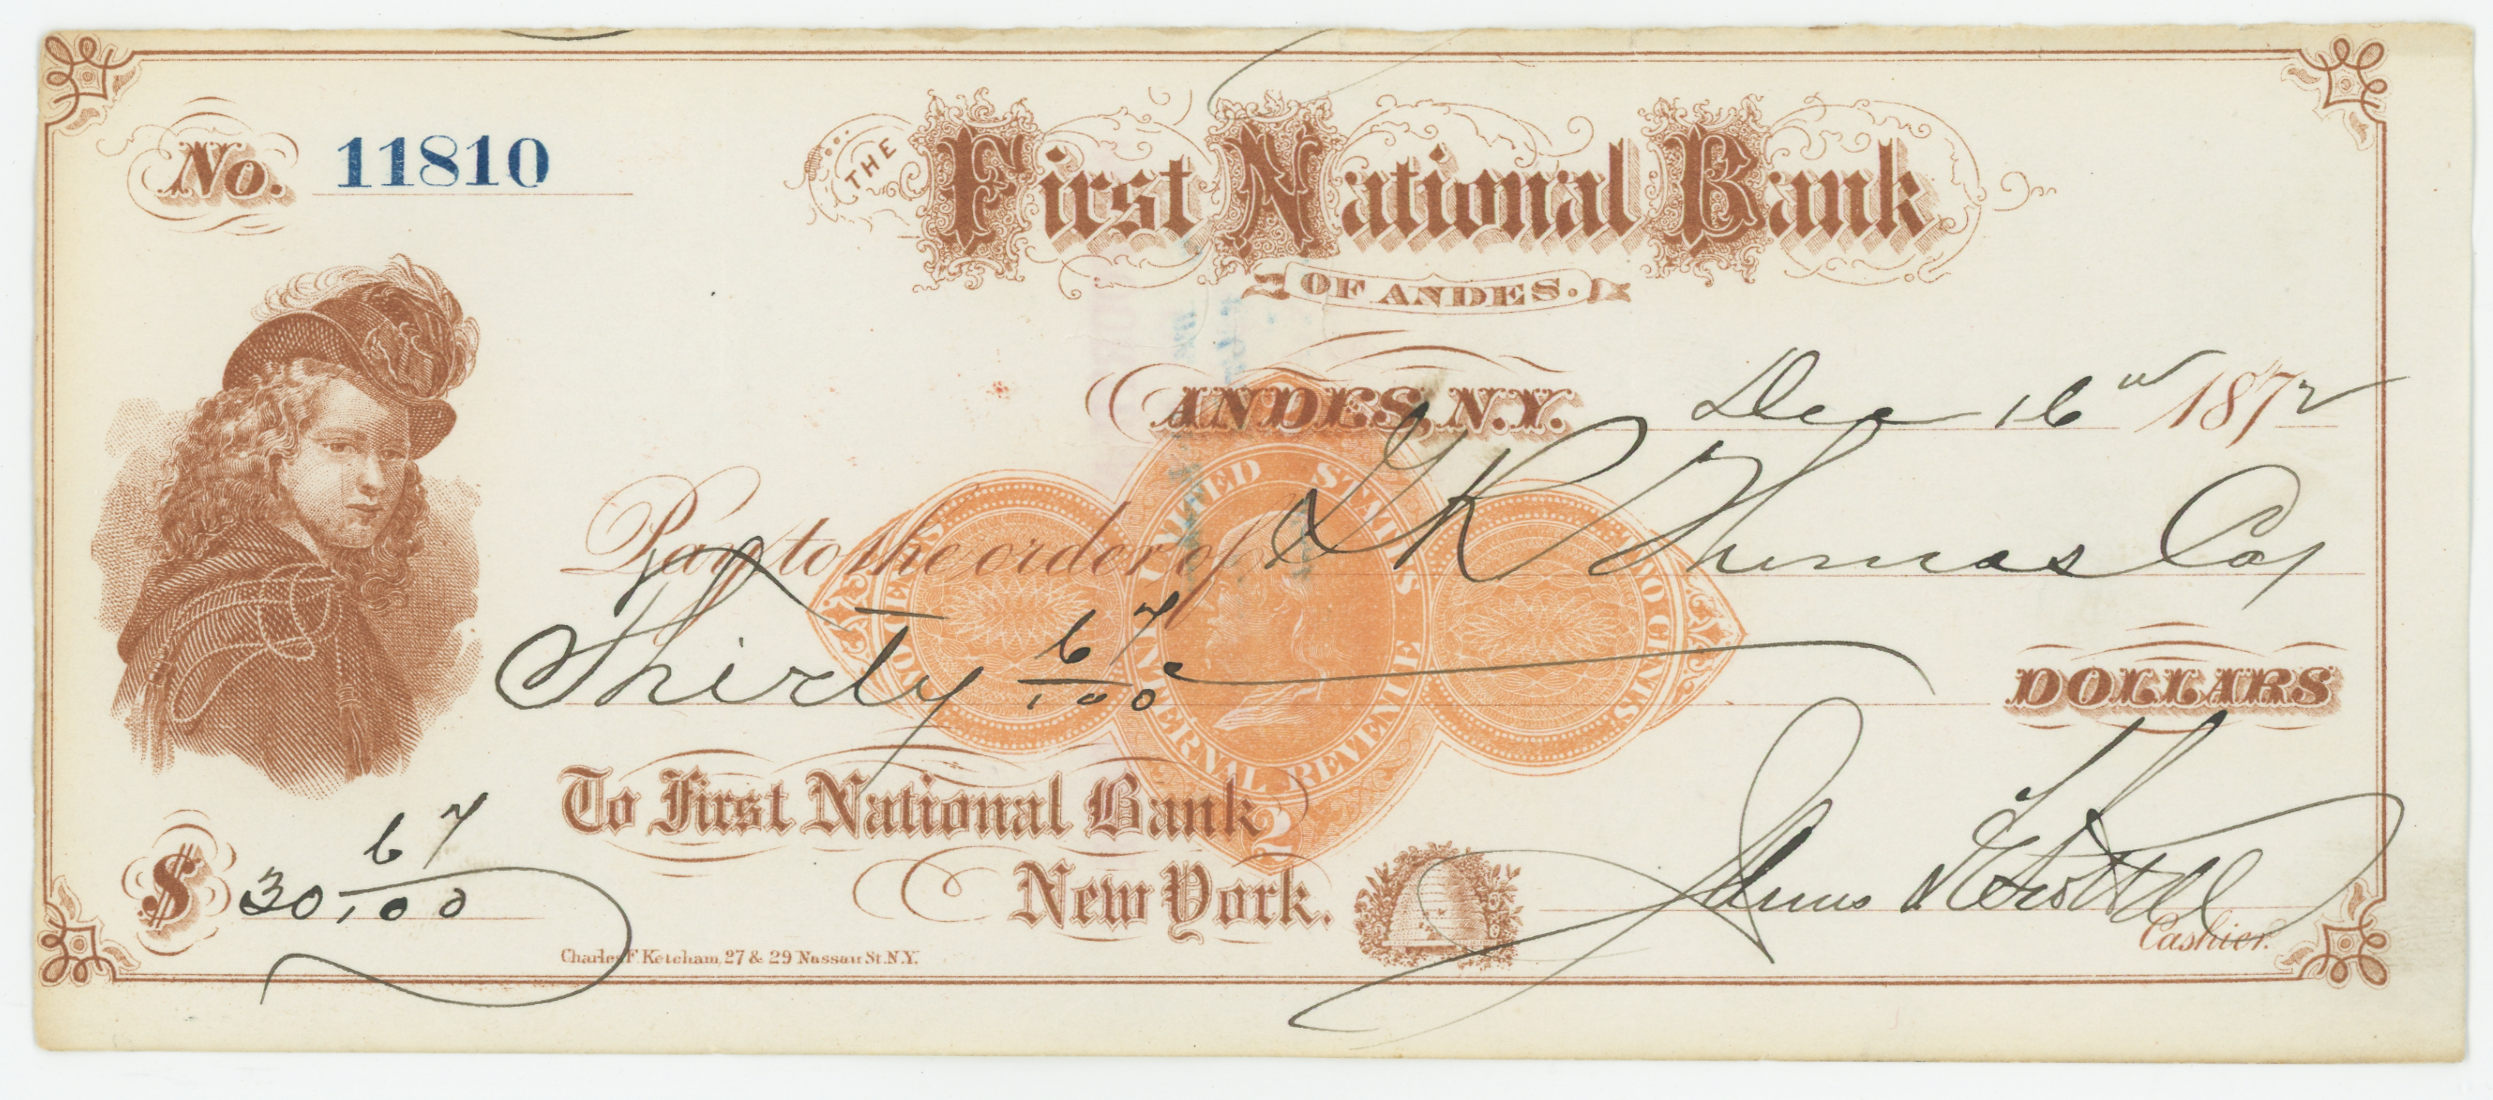 No. 11810
THE First National Bank
OF ANDES.
ANDES, N.Y. Dec 16 1872
Pay to the order of R Thomas
Thirty 67/100 DOLLARS
UNITED STATES INTERNAL REVENUE
TWO CENTS
TWO CENTS
2
To First National Bank
New York.
$ 30 67/100
James
Cashier.
Charles F Ketcham, 27 & 29 Nassau St. N.Y.